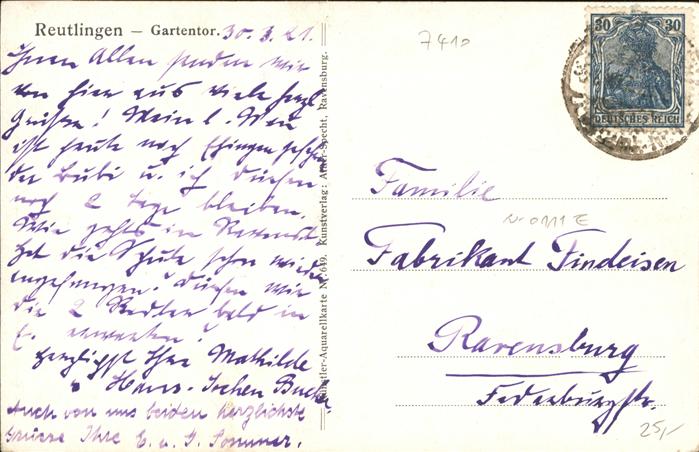 Reutlingen – Gartentor. 30.3.21.
Ihnen Allen senden wir
von hier aus viele herzl.
Grüsse! Mein l. Mann
ist heute nach Ehingen
der Bubi u. ich dürfen
noch 2 Tage bleiben.
Wie gehts in Ravensb.
Hat die Schule schon wieder
angefangen? Dürfen wir
die 2 bald in
E. erwarten?
Herzlichst Ihre Mathilde
u. Hans-Jochen
Auch von uns beiden herzlichste
Grüsse Ihre E. u. J. Sommer.
Künstler-Aquarellkarte Nr. 649. Kunstverlag: Specht, Ravensburg.
7410
30 30
DEUTSCHES REICH
Familie
Fabrikant Findeisen
Ravensburg
Federburgstr.
25,-